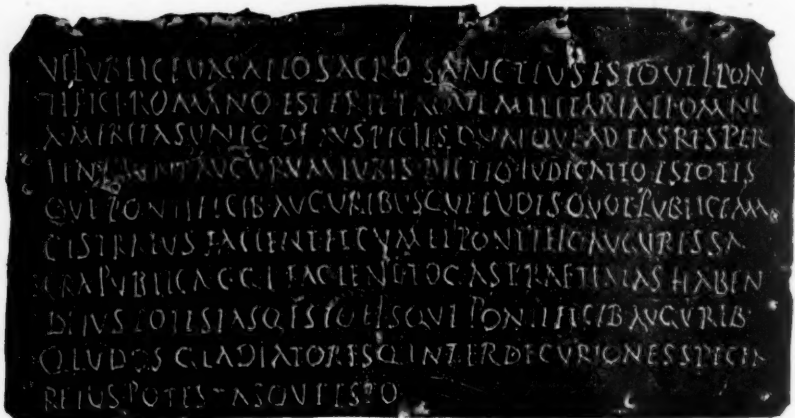 VE PVBLICE VACATIO SACRO SANCTIVS ESTO VTI PON
TIFICI ROMANO EST ERIT QVE MILITARIA EI OMNI
A MERITA SVNTO DE AVSPICIIS QVAEQVE AD EAS RES PER
TINEBVNT AVGVRVM IVRIS DICTIO IVDICATIO ESTO EIS
QVE PONTIFICIB AVGVRIBVSQVE LVDIS QVOT PVBLICE MA
GISTRATVS FACIENT ET CVM EI PONTIFIC AVGVRES SA
CRA PVBLICA C G I FACIENT TOGAS PRAETEXTAS HABEN
DI IVS POTESTASQ ESTO EISQVE PONTIFICIB AVGVRIB
Q LVDOS GLADIATORESQ INTER DECVRIONES SPECTA
RE IVS POTESTASQVE ESTO